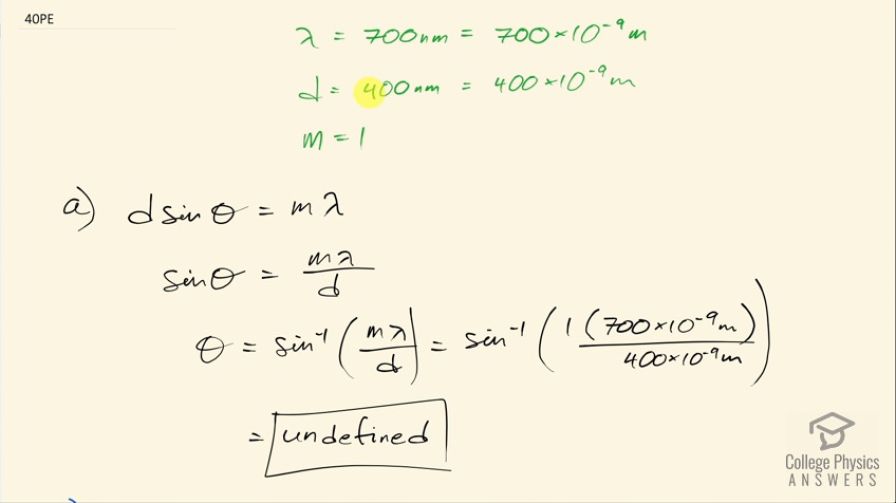 40PE
λ = 700nm = 700×10⁻⁹m
d = 400nm = 400×10⁻⁹m
m = 1
a) d sin θ = m λ
sin θ = mλ/d
θ = sin⁻¹(mλ/d) = sin⁻¹(1(700×10⁻⁹m)/400×10⁻⁹m)
= undefined
College Physics
ANSWERS